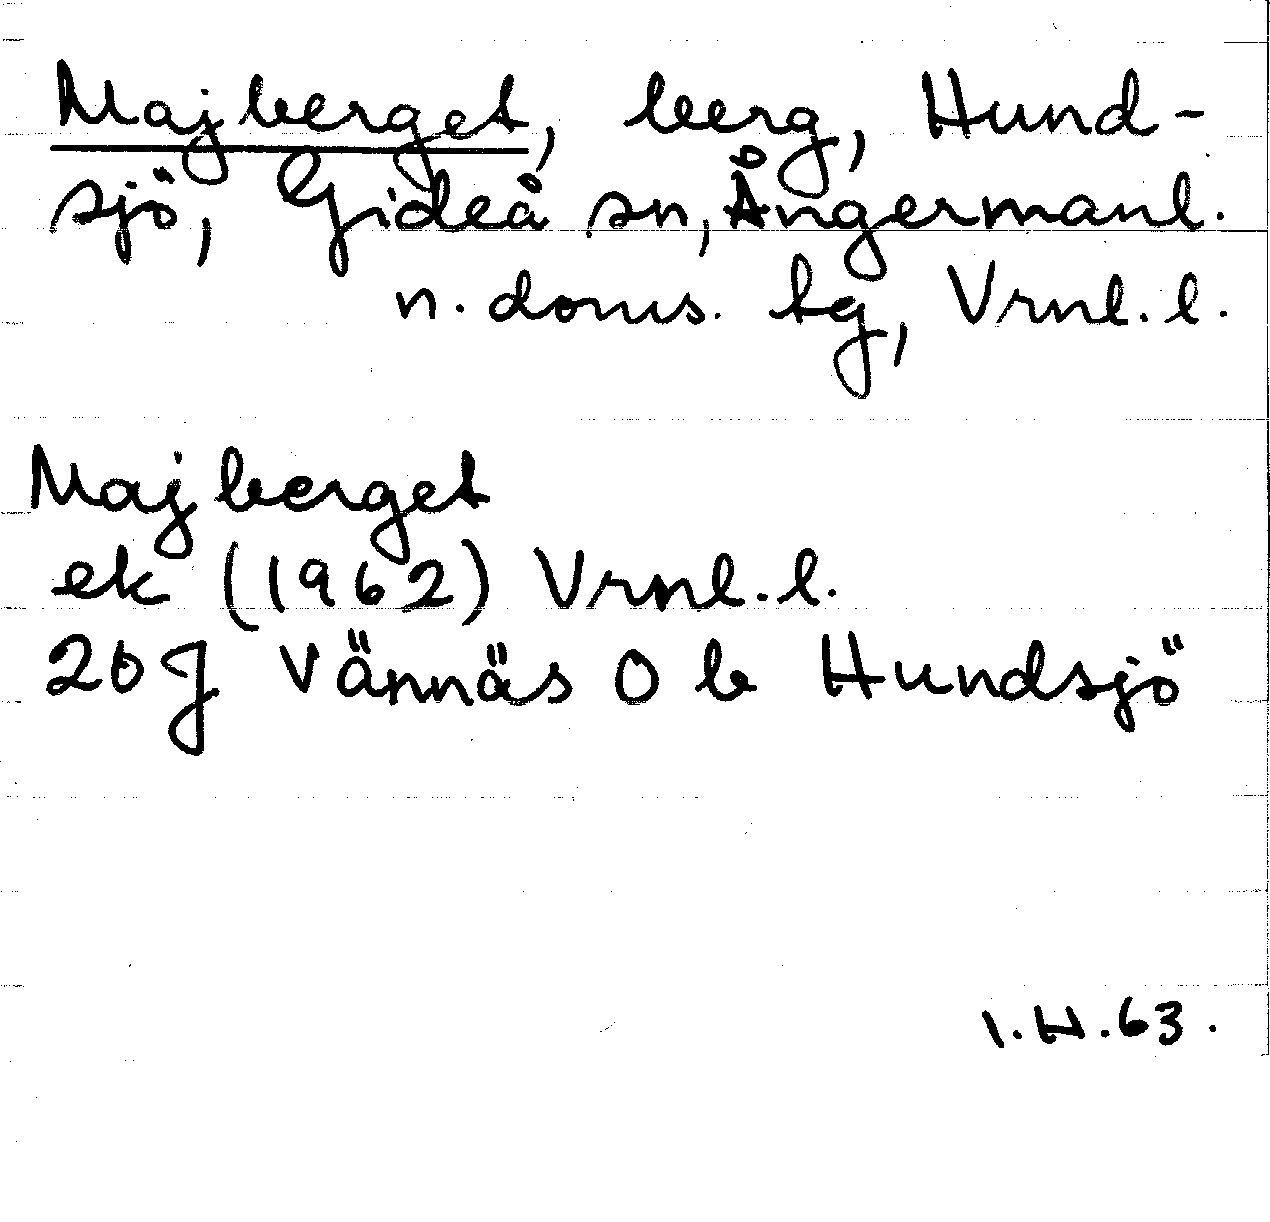 Majberget, berg, Hund-
sjö, Gideå sn, Ångermanl.
n. doms. tg, Vrnl. l.
Majberget
ek (1962) Vrnl. l.
20J Vännäs O b Hundsjö
I.H.63.